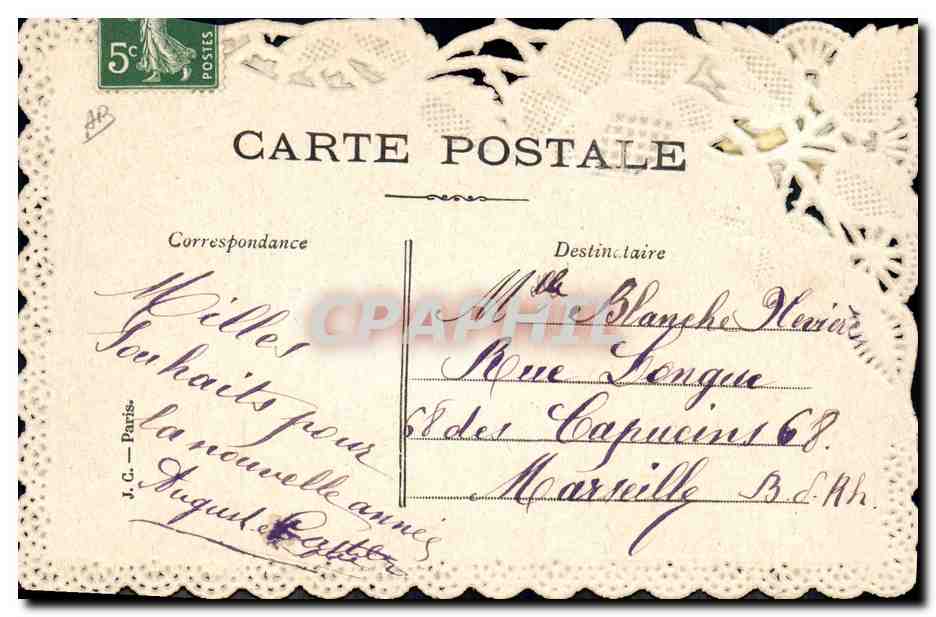 5c
POSTES
AB
CARTE POSTALE
Correspondance
Destinataire
Milles
Souhaits pour
la nouvelle année
Auguste
Mlle Blanche
Rue Longue
68 des Capucins 68.
Marseille B. d. Rh.
J. C. — Paris.
CPAPHIL